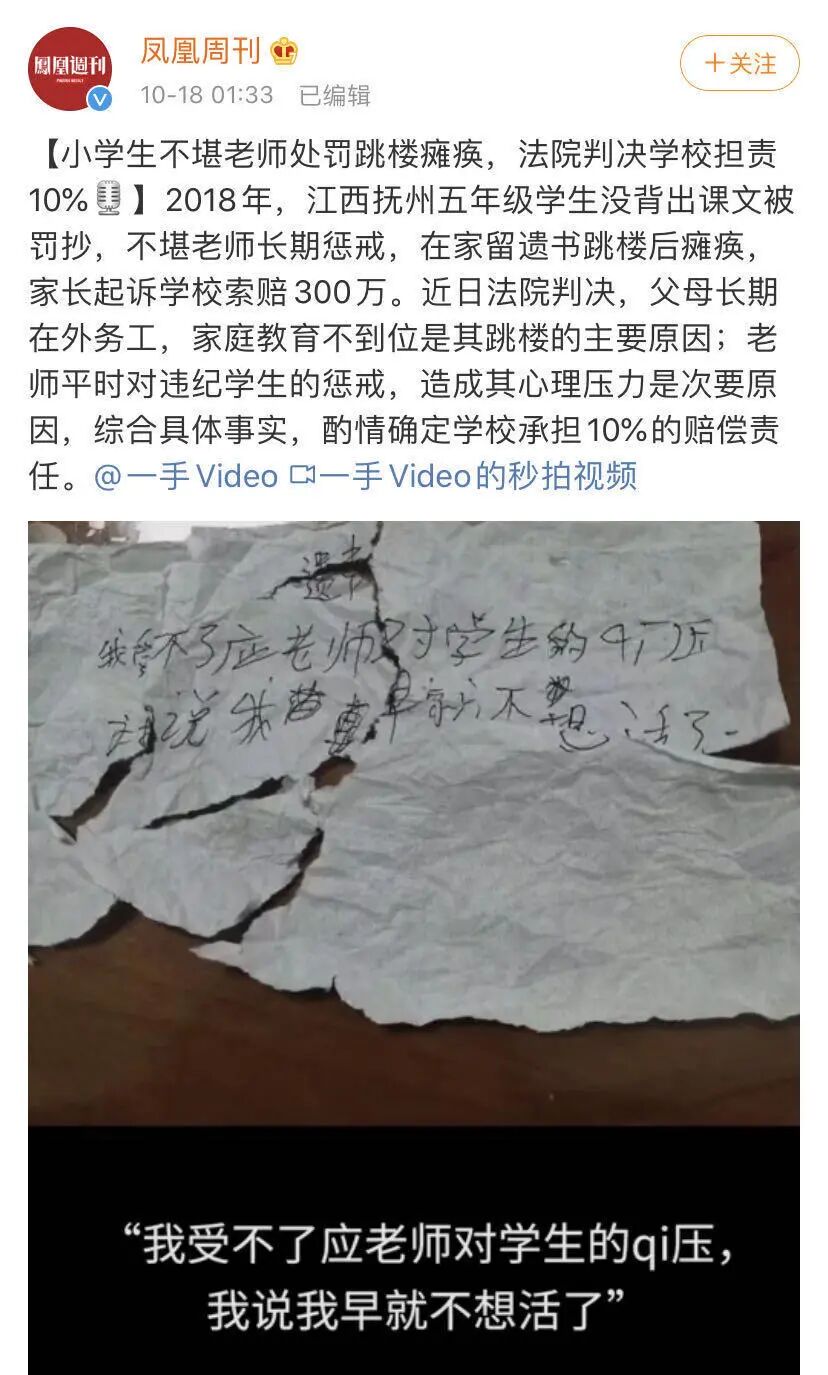 鳳凰週刊
PHOENIX WEEKLY
凤凰周刊
10-18 01:33 已编辑
+关注
【小学生不堪老师处罚跳楼瘫痪，法院判决学校担责
10%🎙️】2018年，江西抚州五年级学生没背出课文被
罚抄，不堪老师长期惩戒，在家留遗书跳楼后瘫痪，
家长起诉学校索赔300万。近日法院判决，父母长期
在外务工，家庭教育不到位是其跳楼的主要原因；老
师平时对违纪学生的惩戒，造成其心理压力是次要原
因，综合具体事实，酌情确定学校承担10%的赔偿责
任。@一手Video 一手Video的秒拍视频
遗书
我受不了应老师对学生的qi压
说我 早就不想活了
“我受不了应老师对学生的qi压，
我说我早就不想活了”